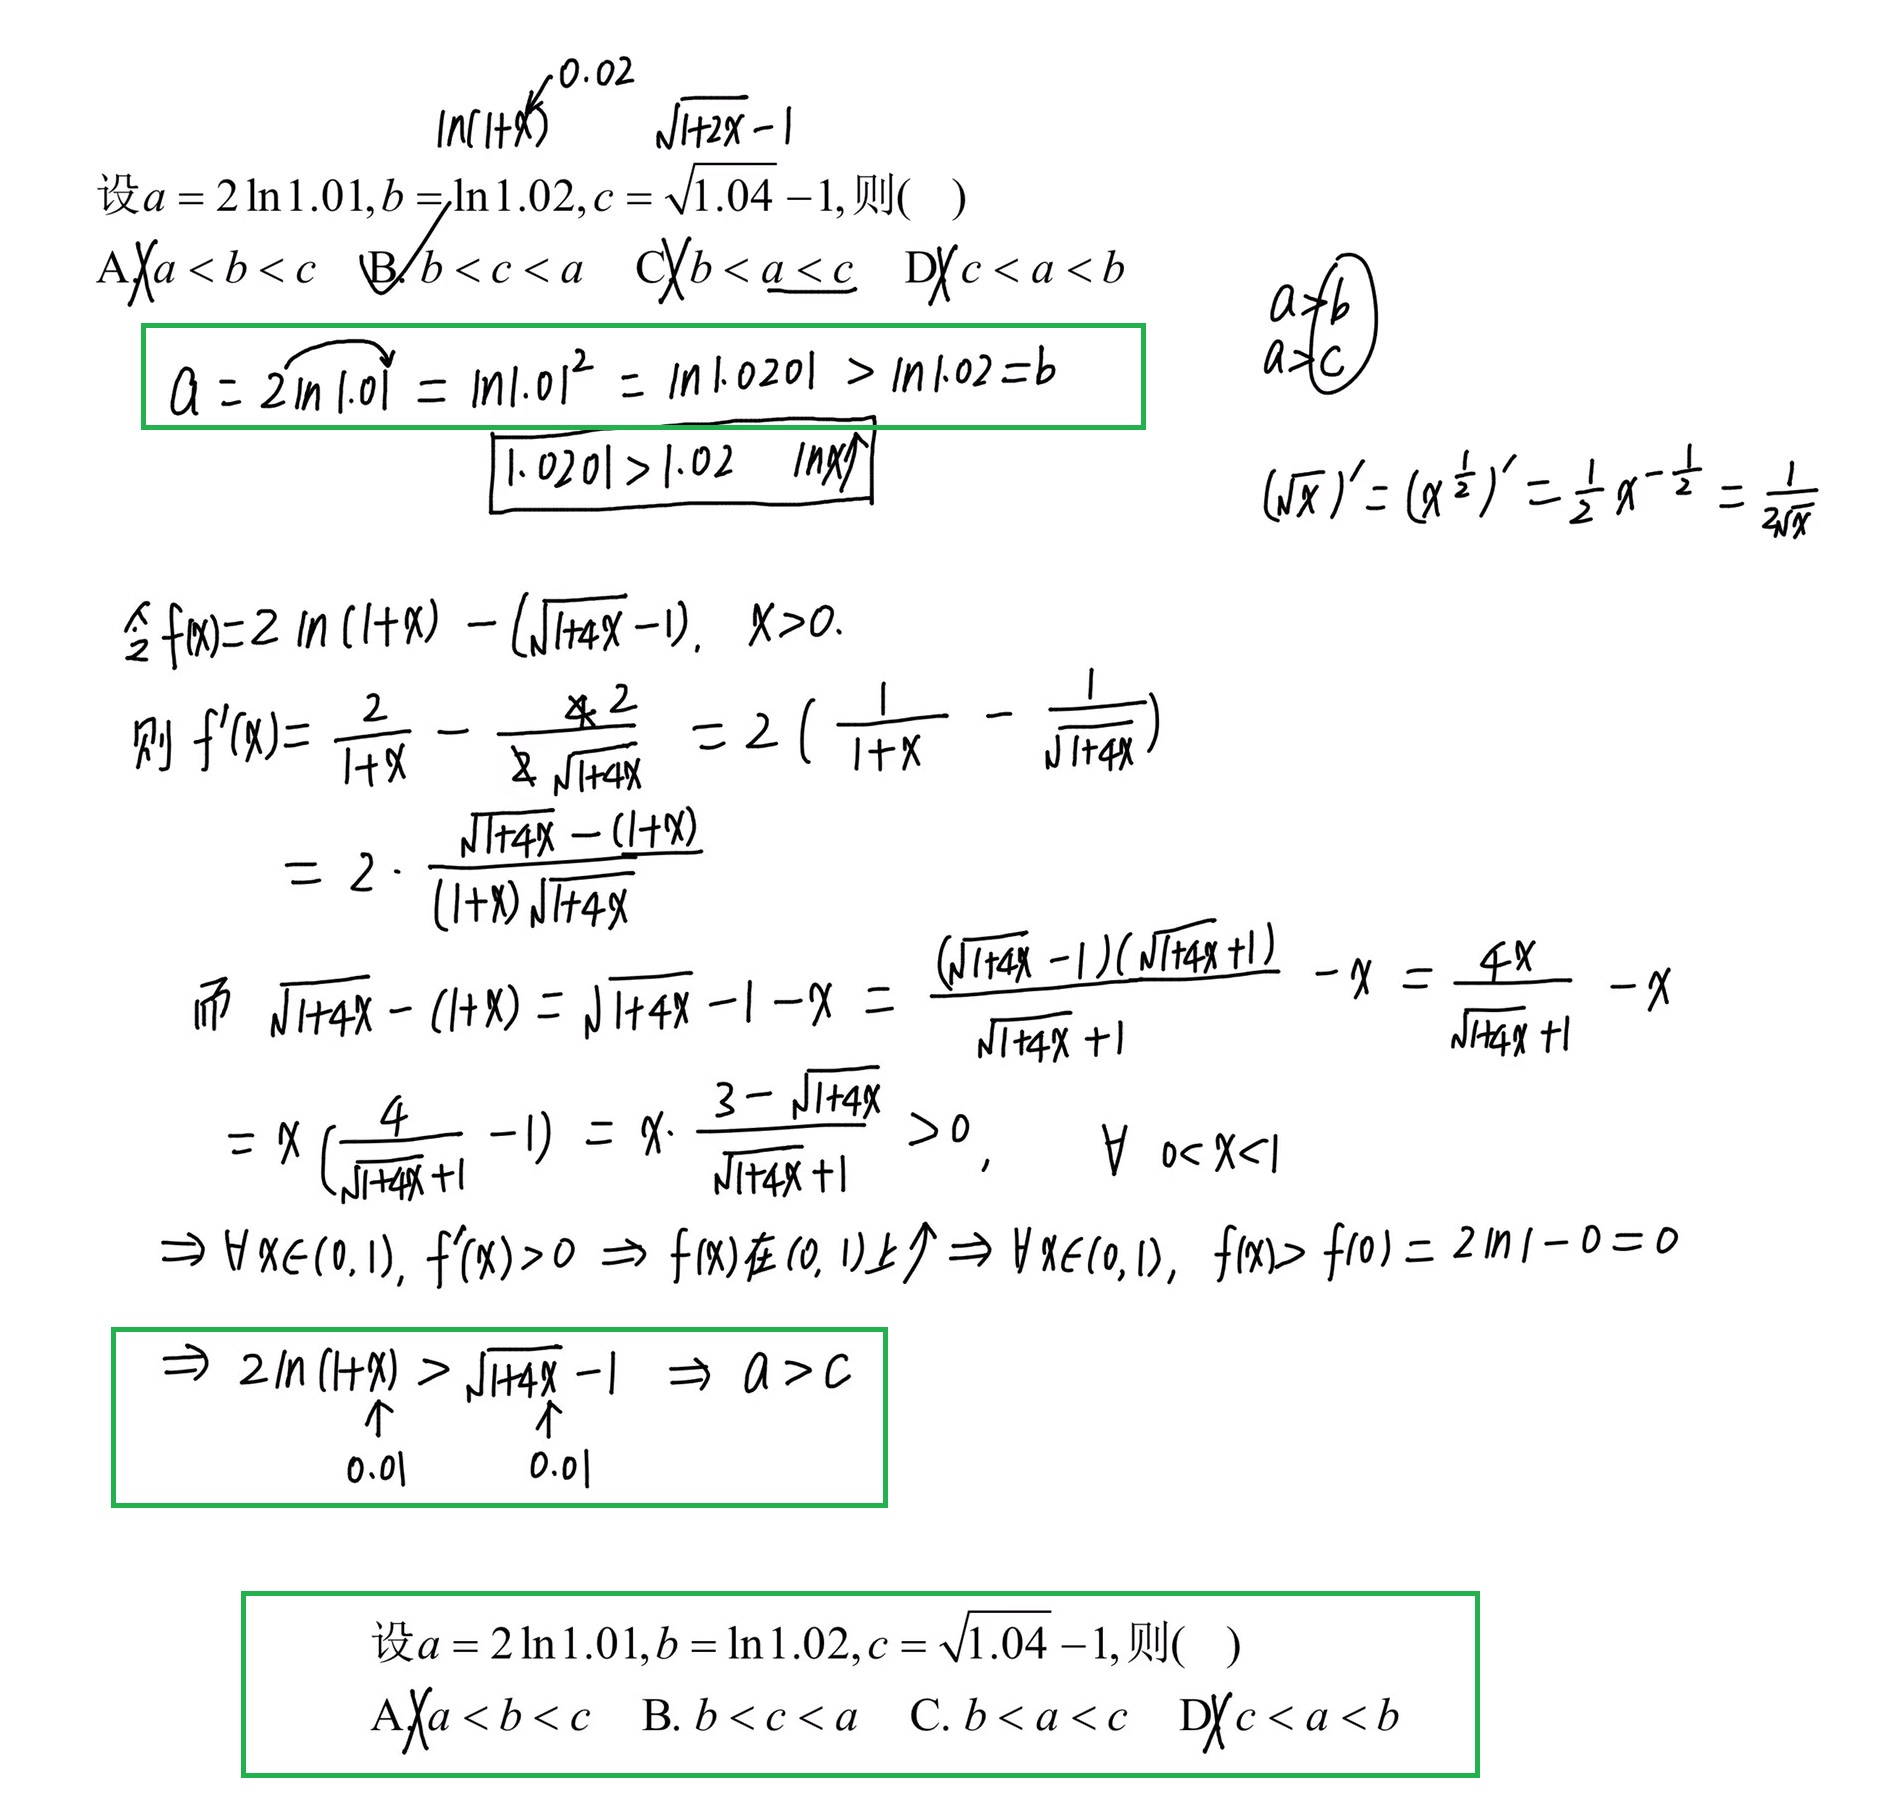 0.02
ln(1+x) √(1+2x)-1
设a = 2 ln 1.01, b = ln 1.02, c = √1.04 − 1, 则( )
A. a < b < c B. b < c < a C. b < a < c D. c < a < b
a>b
a>c
a = 2ln1.01 = ln1.01² = ln1.0201 > ln1.02 = b
1.0201 > 1.02 lnx↑
(√x)' = (x^(1/2))' = 1/2 x^(-1/2) = 1/(2√x)
令 f(x) = 2 ln(1+x) - (√(1+4x) - 1), x>0.
则 f'(x) = 2/(1+x) - 4 2/(2√(1+4x)) = 2(1/(1+x) - 1/√(1+4x))
= 2 · (√(1+4x) - (1+x))/((1+x)√(1+4x))
而 √(1+4x) - (1+x) = √(1+4x) - 1 - x = (√(1+4x) - 1)(√(1+4x) + 1)/(√(1+4x) + 1) - x = 4x/(√(1+4x) + 1) - x
= x(4/(√(1+4x) + 1) - 1) = x · (3 - √(1+4x))/(√(1+4x) + 1) > 0, ∀ 0<x<1
⇒ ∀x∈(0,1), f'(x)>0 ⇒ f(x)在(0,1)上↑ ⇒ ∀x∈(0,1), f(x)> f(0) = 2ln1 - 0 = 0
⇒ 2ln(1+x) > √(1+4x) - 1 ⇒ a > c
↑ ↑
0.01 0.01
设a = 2 ln 1.01, b = ln 1.02, c = √1.04 − 1, 则( )
A. a < b < c B. b < c < a C. b < a < c D. c < a < b